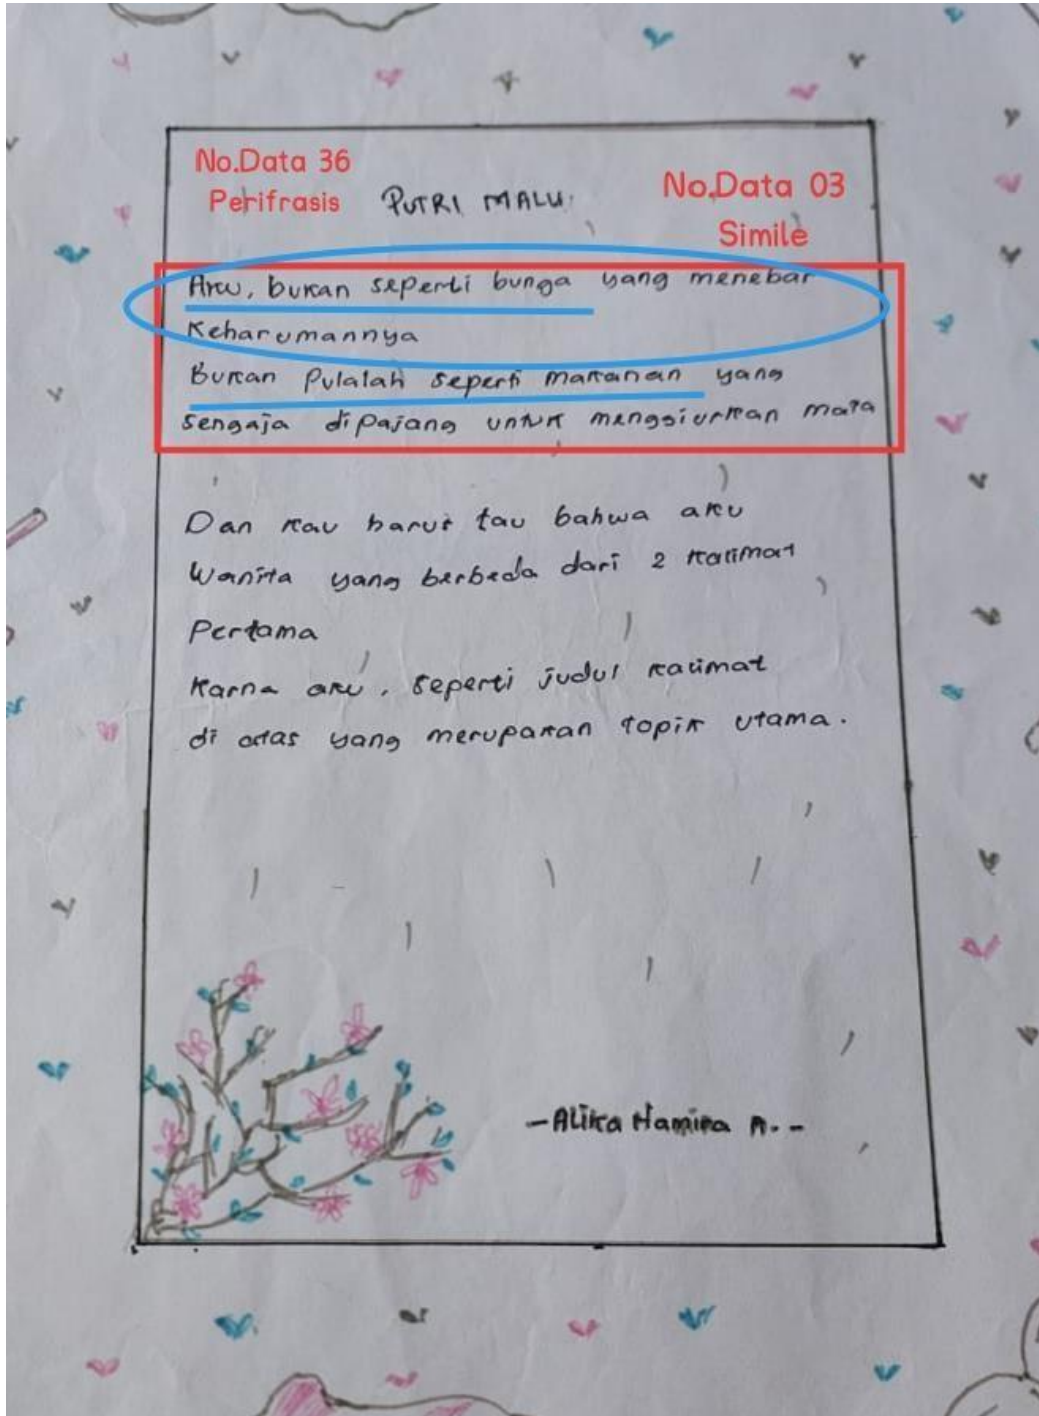 No.Data 36
Perifrasis
PUTRI MALU
No.Data 03
Simile
Aku, bukan seperti bunga yang menebar
Keharumannya
Bukan Pulalah seperti makanan yang
sengaja dipajang untuk menggiurkan mata
Dan kau harus tau bahwa aku
Wanita yang berbeda dari 2 kalimat
Pertama
Karna aku, seperti judul kalimat
di atas yang merupakan topik utama.
-Alika Hamira A.-